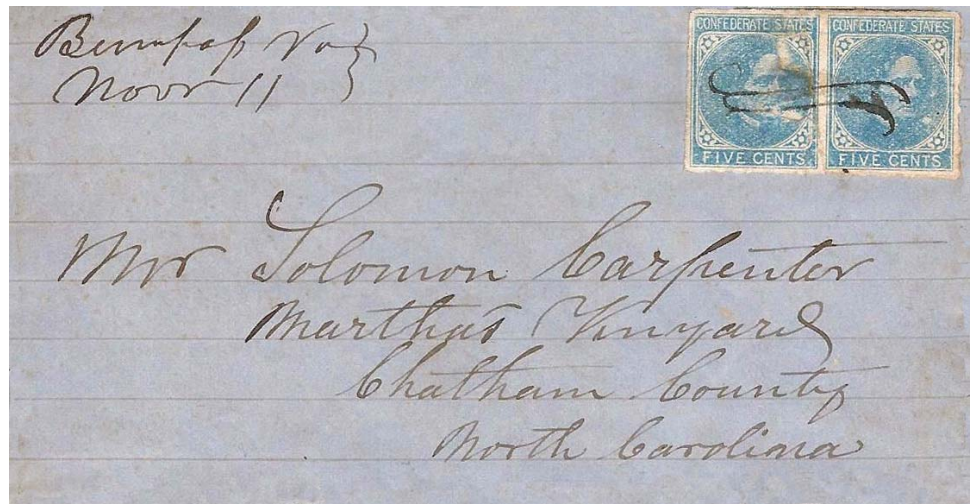 Bumpass Va
Novr 11
CONFEDERATE STATES
FIVE CENTS
CONFEDERATE STATES
FIVE CENTS
Mr Solomon Carpenter
Martha's Vinyard
Chatham County
North Carolina